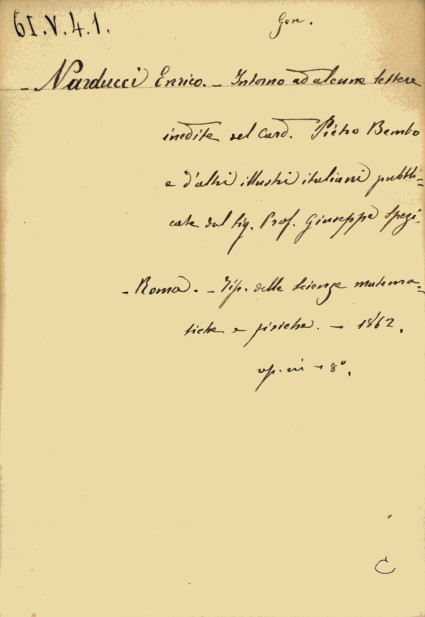 61.V.4.1.
Gen.
Narducci Enrico. - Intorno ad alcune lettere
inedite del Card. Pietro Bembo
e d'altri illustri italiani pubbli-
cate dal Sig. Prof. Giuseppe Spezi.
- Roma. - Tip. delle scienze matema-
tiche e fisiche. - 1862.
op. in - 8°.
C